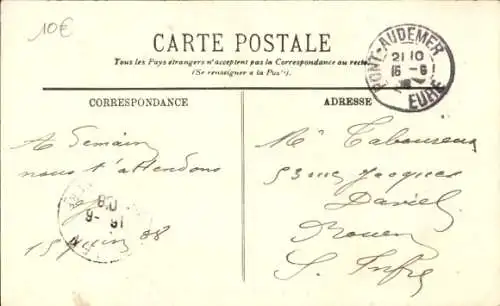 10€
CARTE POSTALE
Tous les Pays étrangers n'acceptent pas la Correspondance au recto
(Se renseigner à la Poste).
PONT-AUDEMER
21 10
16 - 6
EURE
CORRESPONDANCE
ADRESSE
A Demain
nous t'attendons
15 Juin 08
Mr Tabourieux
53 rue Jacques
Daviel
Rouen
S. Infre